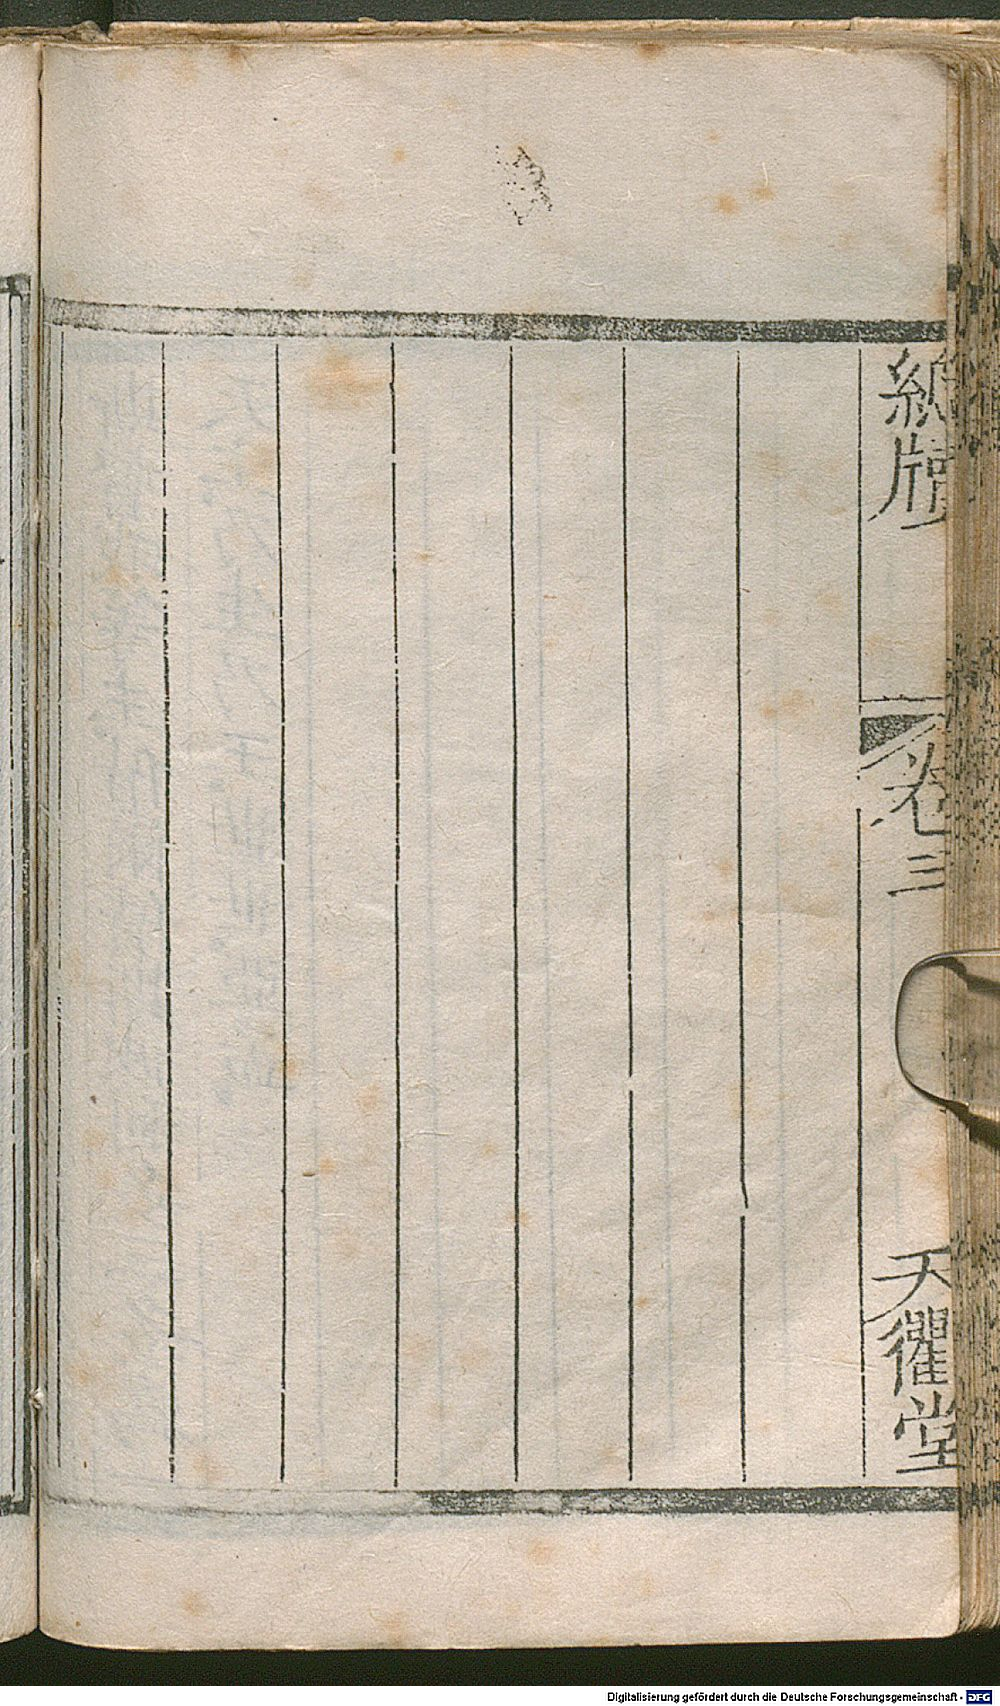 紙牘
卷三
天衢堂
Digitalisierung gefördert durch die Deutsche Forschungsgemeinschaft - DFG